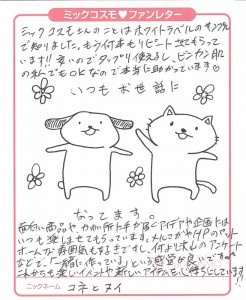 ミックコスモ♥ファンレター
ミックコスモさんのことはホワイトラベルのサンプル
で知りました。もう何本もリピートさせてもらって
います!! 安いのでタップリ使えるし、ビンカン肌
の私でもOKなので本当に助かっています♡
いつもお世話に
なってます。
面白い商品や、かゆい所に手が届くアイデアや企画には
いつも楽しませてもらっています。メルマガやHPのアット
ホームな雰囲気も好きですし、何より沢山のアンケート
などで、「一緒に作っている」という感覚が良いですね。
これからも楽しいイベントや新しいアイデアを心待ちにしています!!
ニックネーム コネとヌイ